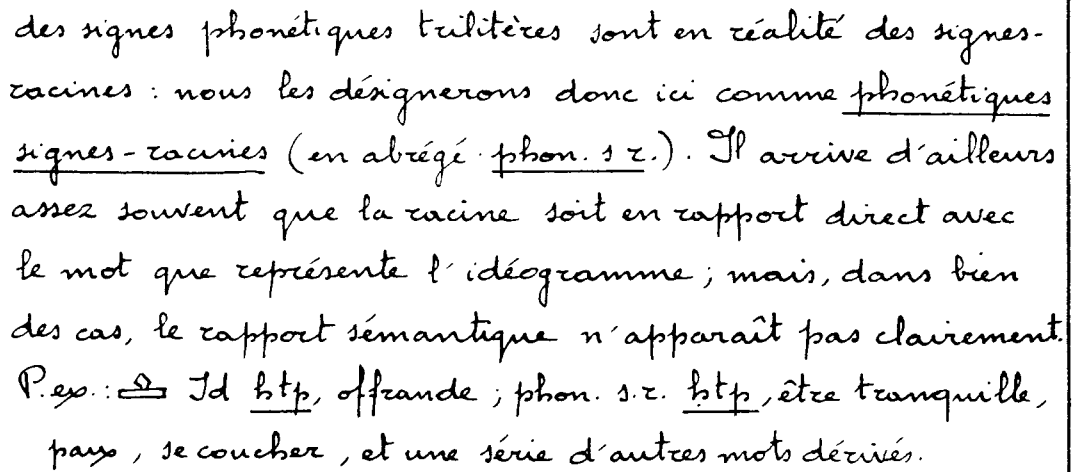 des signes phonétiques trilitères sont en réalité des signes-
racines : nous les désignerons donc ici comme phonétiques
signes-racines (en abrégé phon. s r.). Il arrive d'ailleurs
assez souvent que la racine soit en rapport direct avec
le mot que représente l'idéogramme ; mais, dans bien
des cas, le rapport sémantique n'apparaît pas clairement.
P. ex. : 𓊵 Id ḥtp, offrande ; phon. s.r. ḥtp, être tranquille,
paix, se coucher, et une série d'autres mots dérivés.